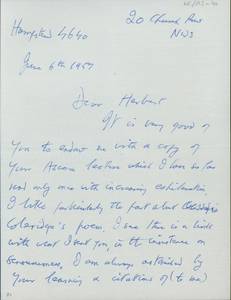 20 Church Row
NW3
Hampstead 4640
June 6th 1957
Dear Herbert
It is very good of
you to endow me with a copy of
your Ascona lecture which I have so far
read only once with increasing exhilaration.
I like particularly the part about
Coleridge's poem. I see there is a link
with what I sent you, in the insistence on
I am always astonished by
your learning & citations of (to me)